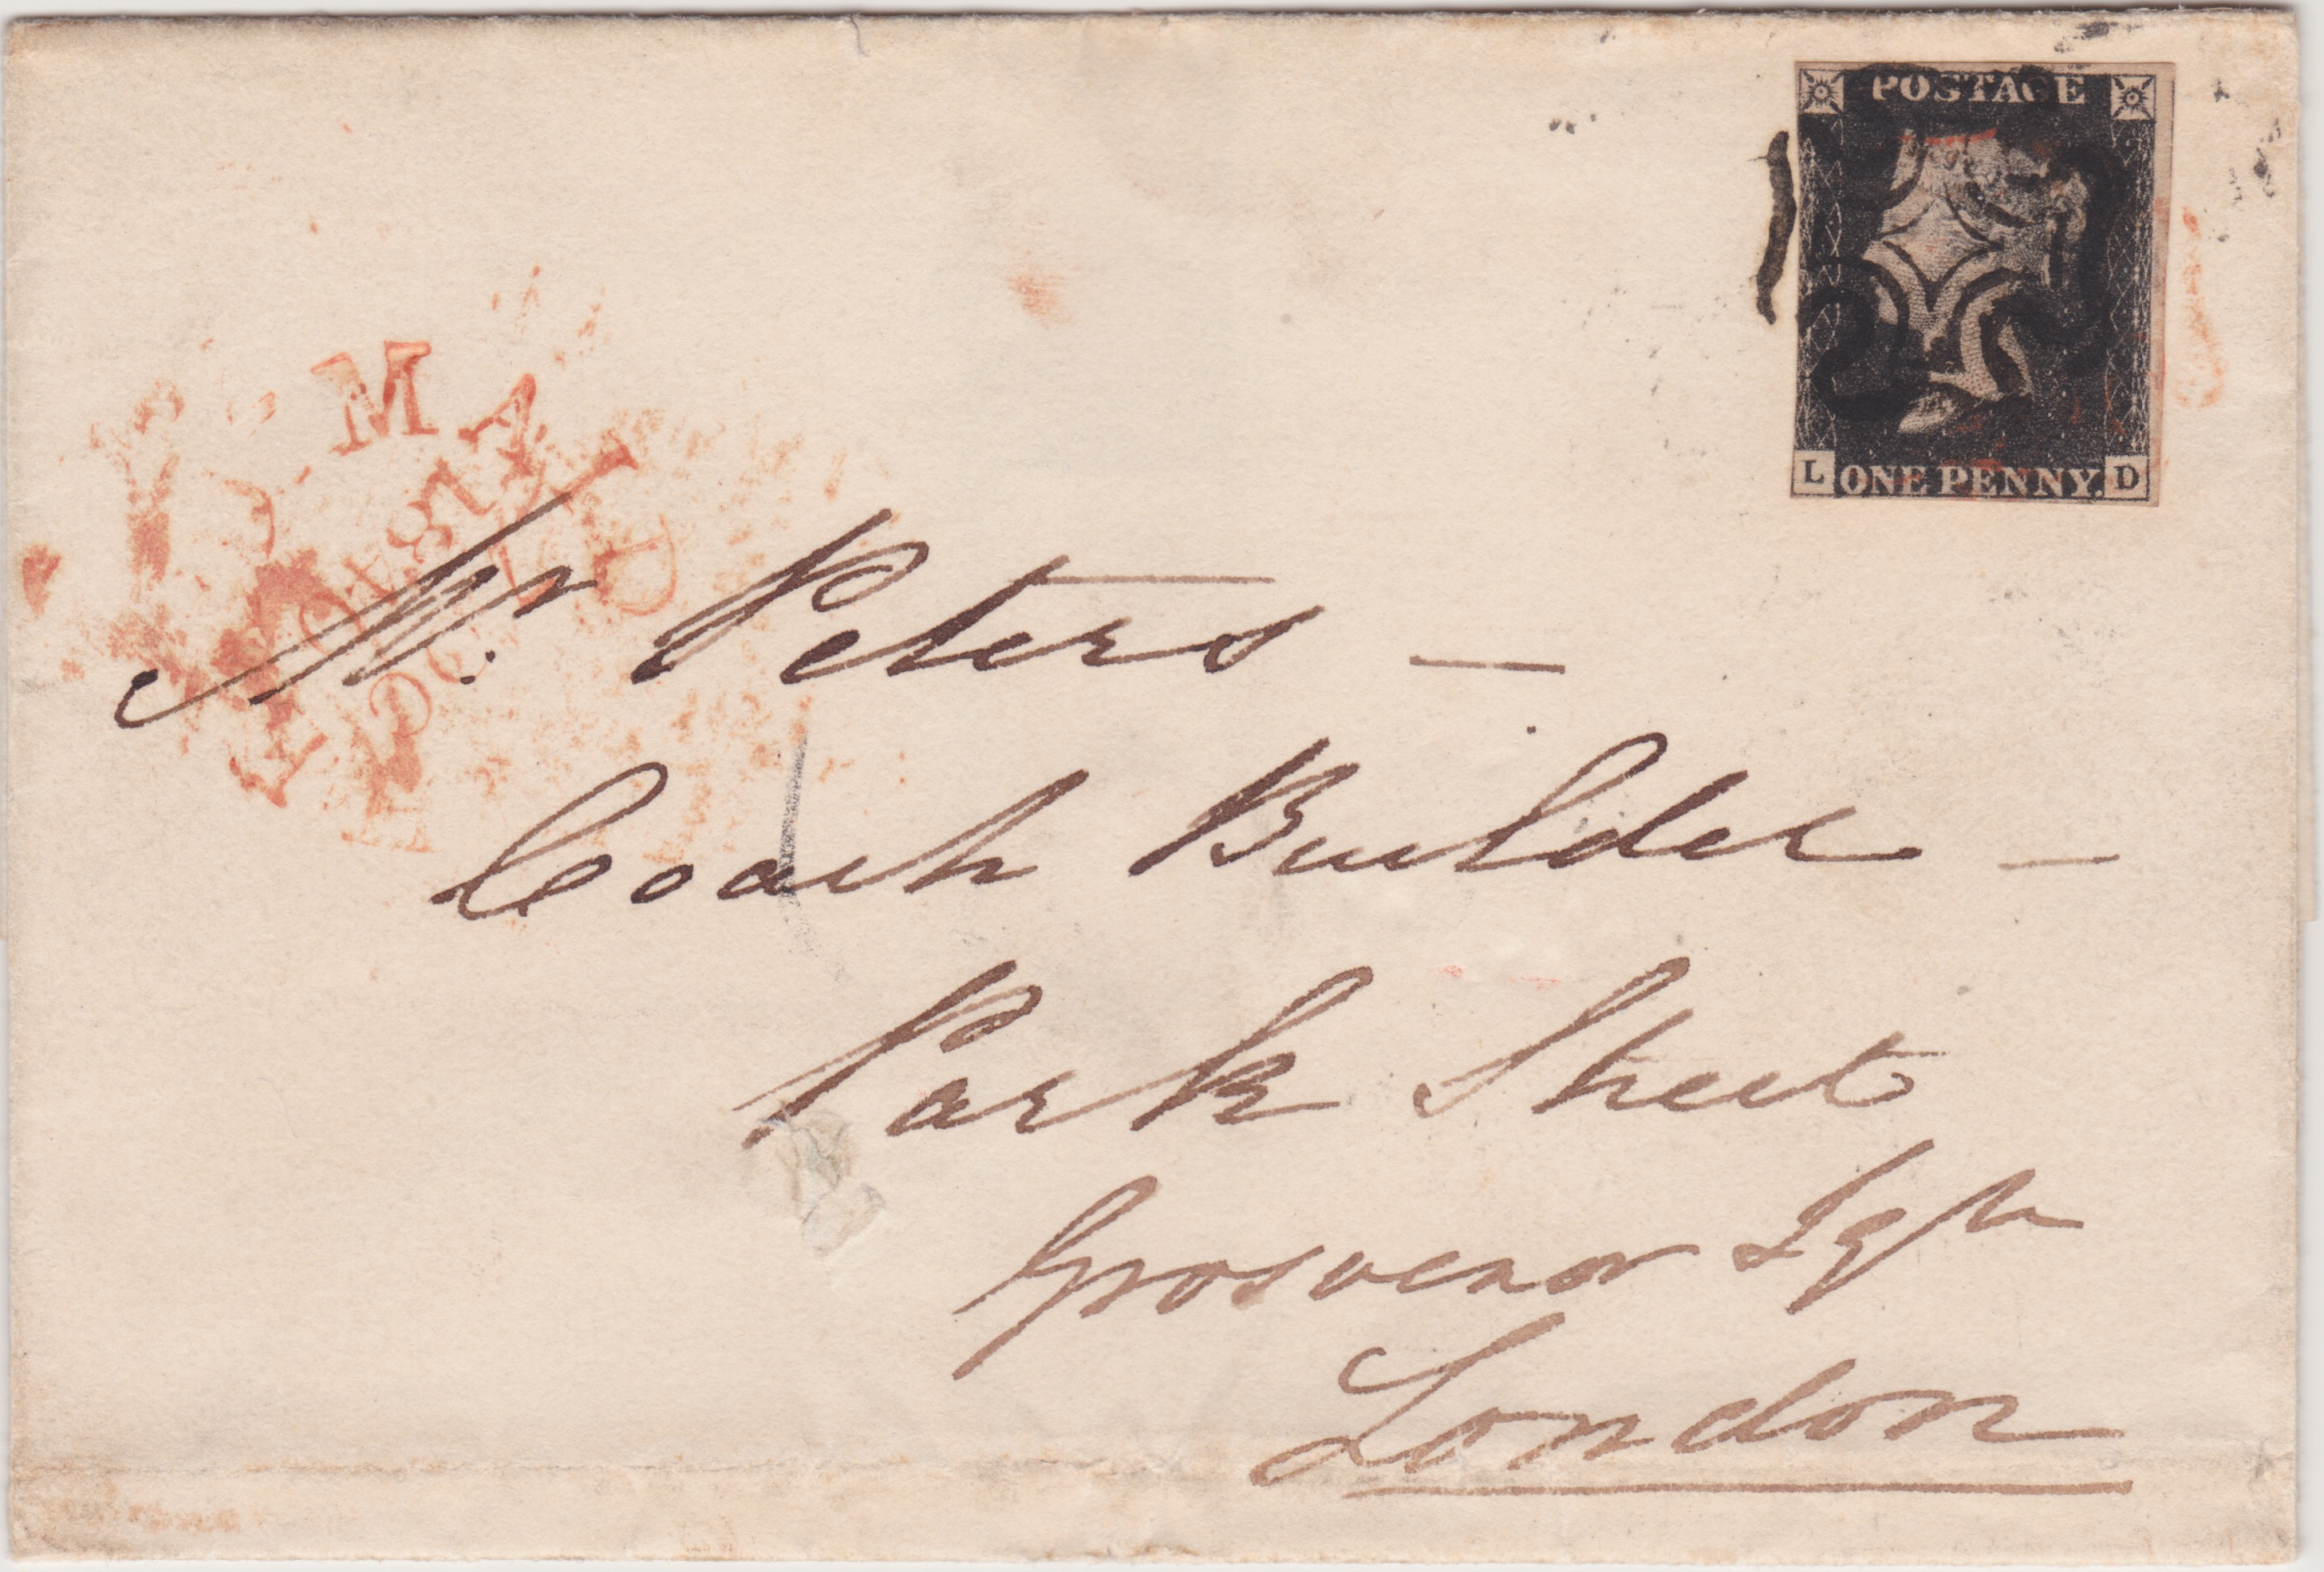 POSTAGE
L ONE PENNY. D
Mr. Peters —
Coach Builder —
Park Street
Grosvenor Sqr
London